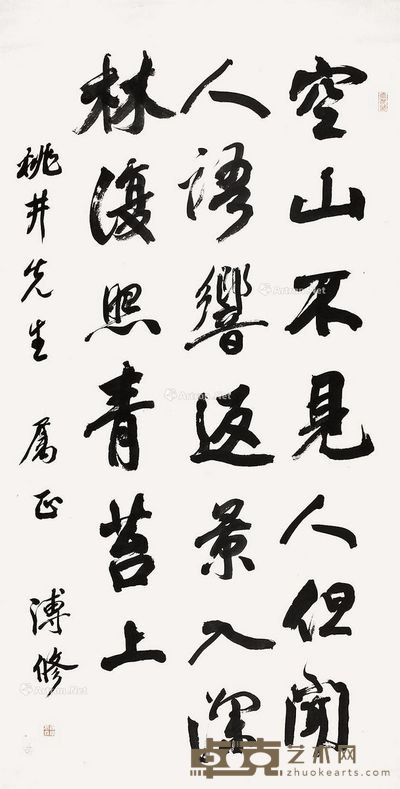 空山不見人但聞
人語響返景入深
林復照青苔上
桃井先生 属正
溥修
卓克艺术网
www.zhuokearts.com